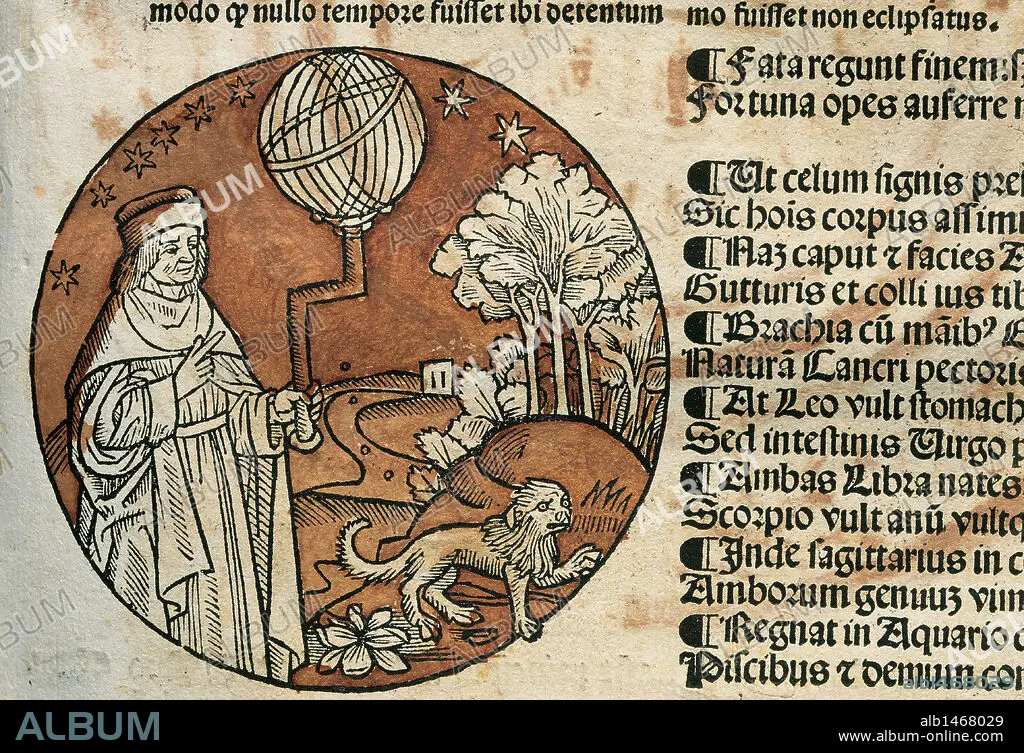 modo qȝ nullo tempore fuisset ibi detentum
mo fuisset non eclipsatus.
¶ Fata regunt finem:
Fortuna opes auferre
¶ Ut celum signis
Sic hoīs corpus
¶ Naz caput ⁊ facies
Gutturis et colli ius
¶ Brachia cū māibꝰ
Naturā Cancri
¶ At Leo vult
Sed intestinis Uirgo
¶ Ambas Libra nates
Scorpio vult anū
¶ Inde sagittarius in
Amborum genuuȝ
¶ Regnat in Aquario
Piscibus ⁊ demum
ALBUM
alb1468029
www.album-online.com